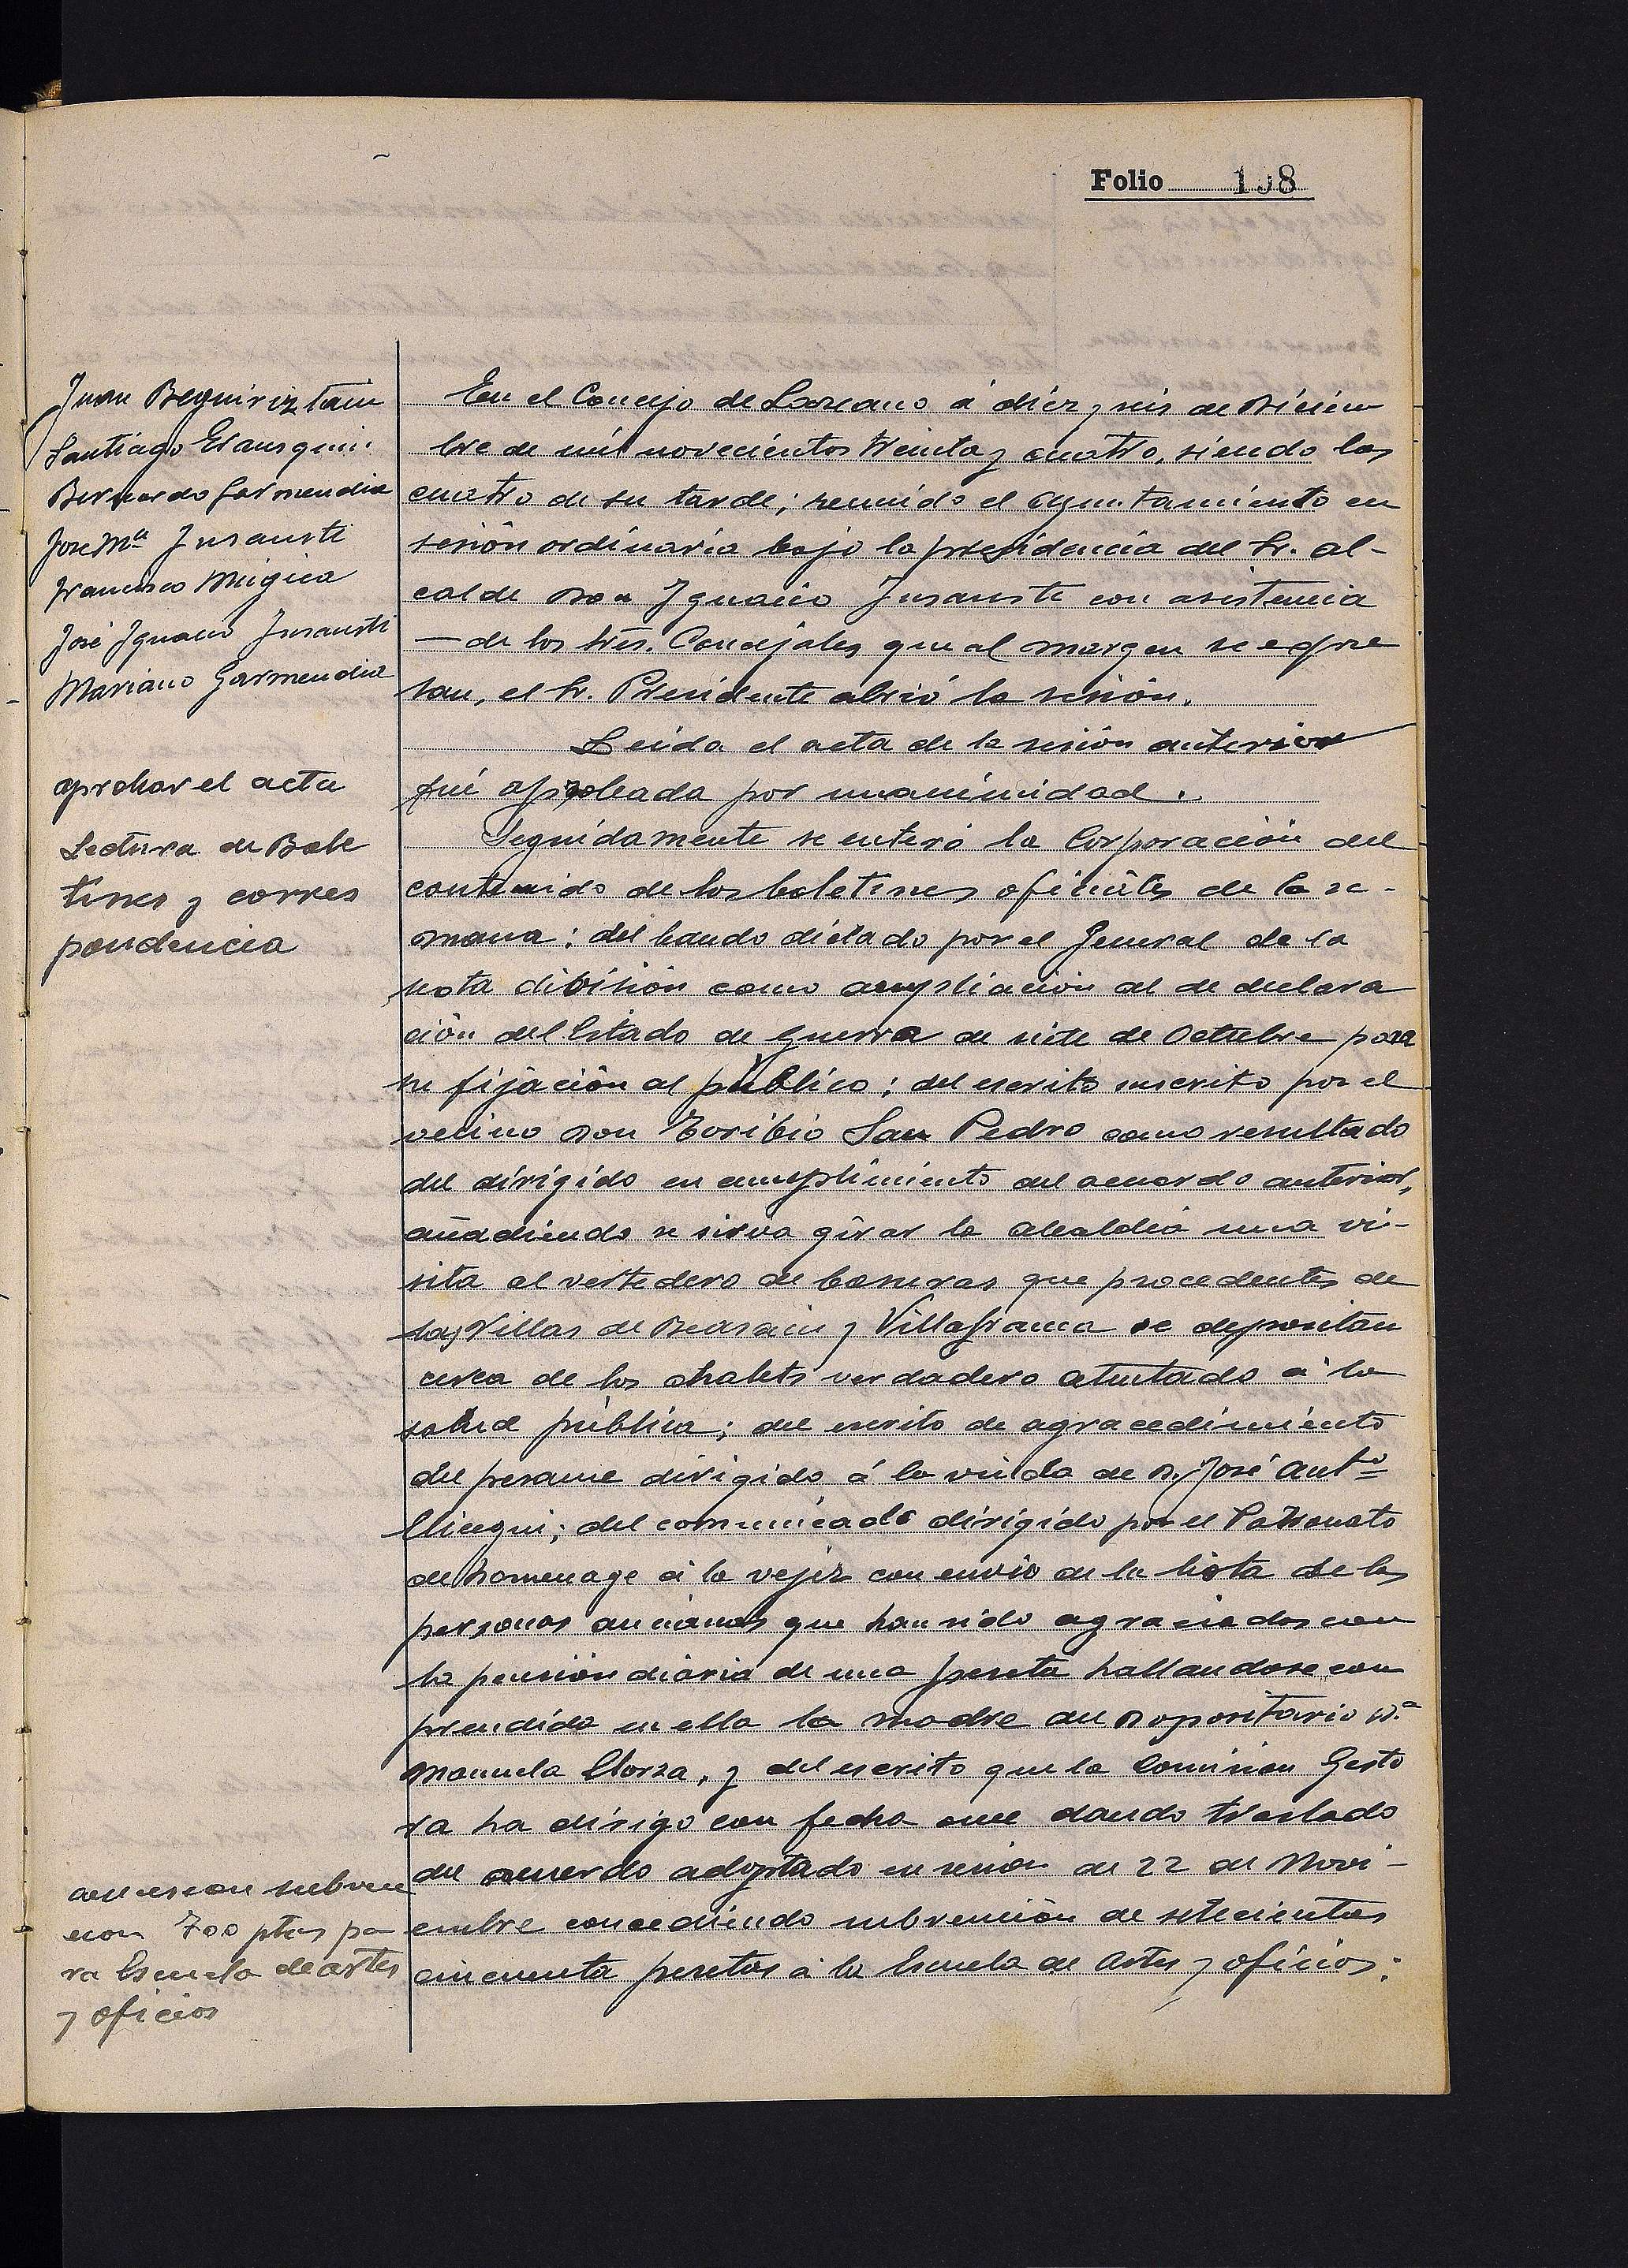 Folio 198
Juan Beguiriztain
Santiago Erausquin
Bernardo Garmendia
José Mª Insausti
Francisco Múgica
José Ignacio Insausti
Mariano Garmendia
aprobar el acta
Lectura de Bole
tines y corres
pondencia
subven
cion 700 ptas pa
ra Escuela de artes
y oficios
En el Concejo de Lazcano á diez y seis de Diciem
bre de mil novecientos treinta y cuatro, siendo las
cuatro de su tarde; reunido el Ayuntamiento en
sesión ordinaria bajo la presidencia del Sr. Al-
calde Don Ignacio Insausti con asistencia
— de los Sres. Concejales que al margen se expre
san, el Sr. Presidente abrió la sesión.
Leida el acta de la sesión anterior
fué aprobada por unanimidad.
Seguidamente se enteró la Corporación del
contenido de los boletines oficiales de la se-
mana: del bando dictado por el General de la
sexta división como ampliación al de declara
ción del Estado de guerra de siete de Octubre para
su fijación al público; del escrito suscrito por el
vecino Don Toribio San Pedro como resultado
del dirigido en cumplimiento del acuerdo anterior,
añadiendo se sirva girar la alcaldia una vi-
sita al vertedero de basuras que procedentes de
las Villas de Beasain y Villafranca se depositan
cerca de los chalets verdadero atentado á la
salud pública; del escrito de agracedimiento
del pesame dirigido á la viuda de D. José Antº
Elicegui; del comunicado dirigido por el Patronato
de homenage á la vejez con envio de la lista de las
personas ancianas que han sido agraciados con
la pensión diaria de una peseta hallandose com
prendida en ella la madre del Dopositario D.ª
Manuela Elorza, y del escrito que la Comision Gesto
ra ha dirigo con fecha once dando traslado
del acuerdo adoptado en sesion de 22 de Novi-
embre concediendo subvención de setecientas
cincuenta pesetas á la Escuela de Artes y oficios;